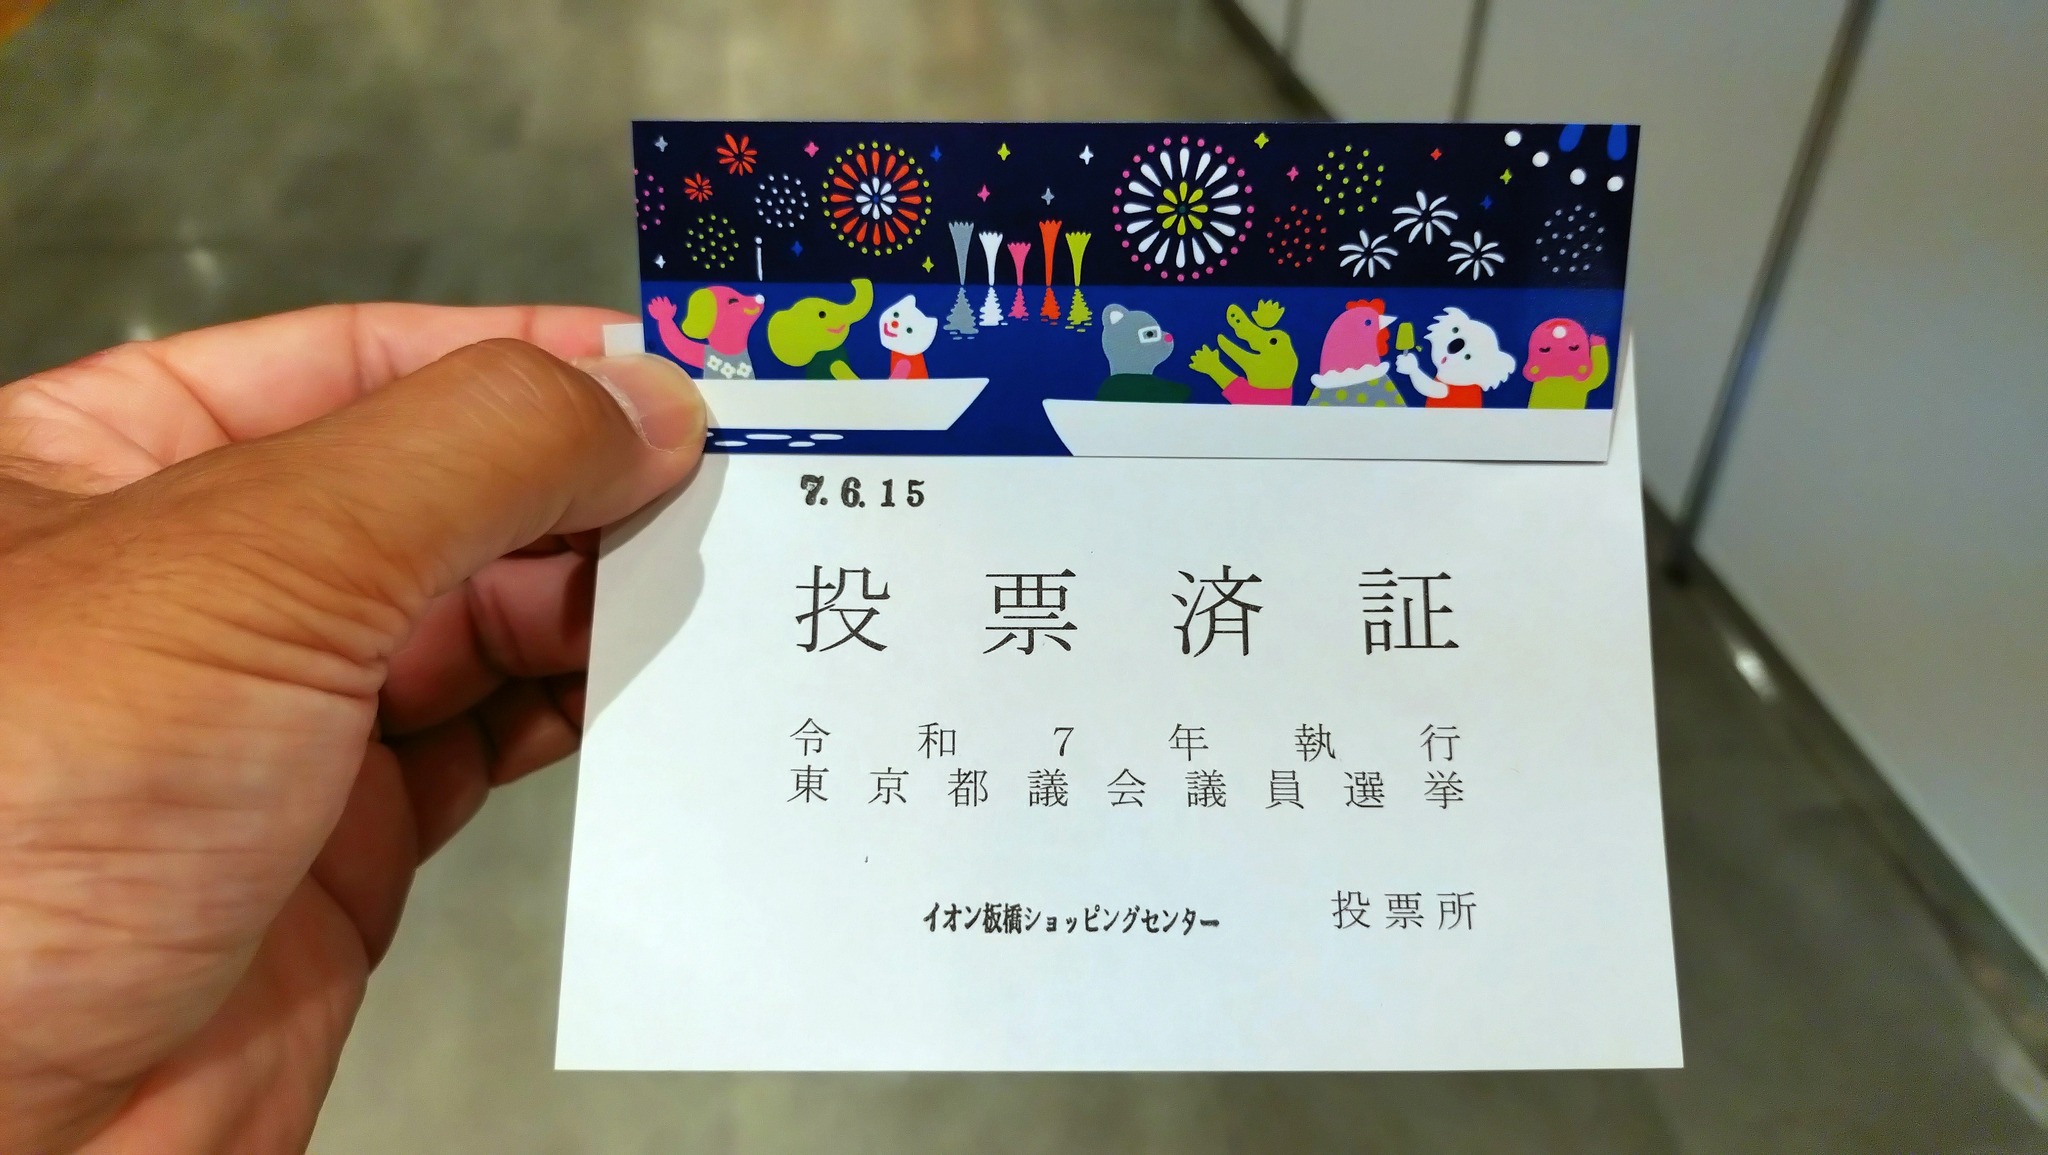 7.6.15
投票済証
令和7年執行
東京都議会議員選挙
イオン板橋ショッピングセンター 投票所